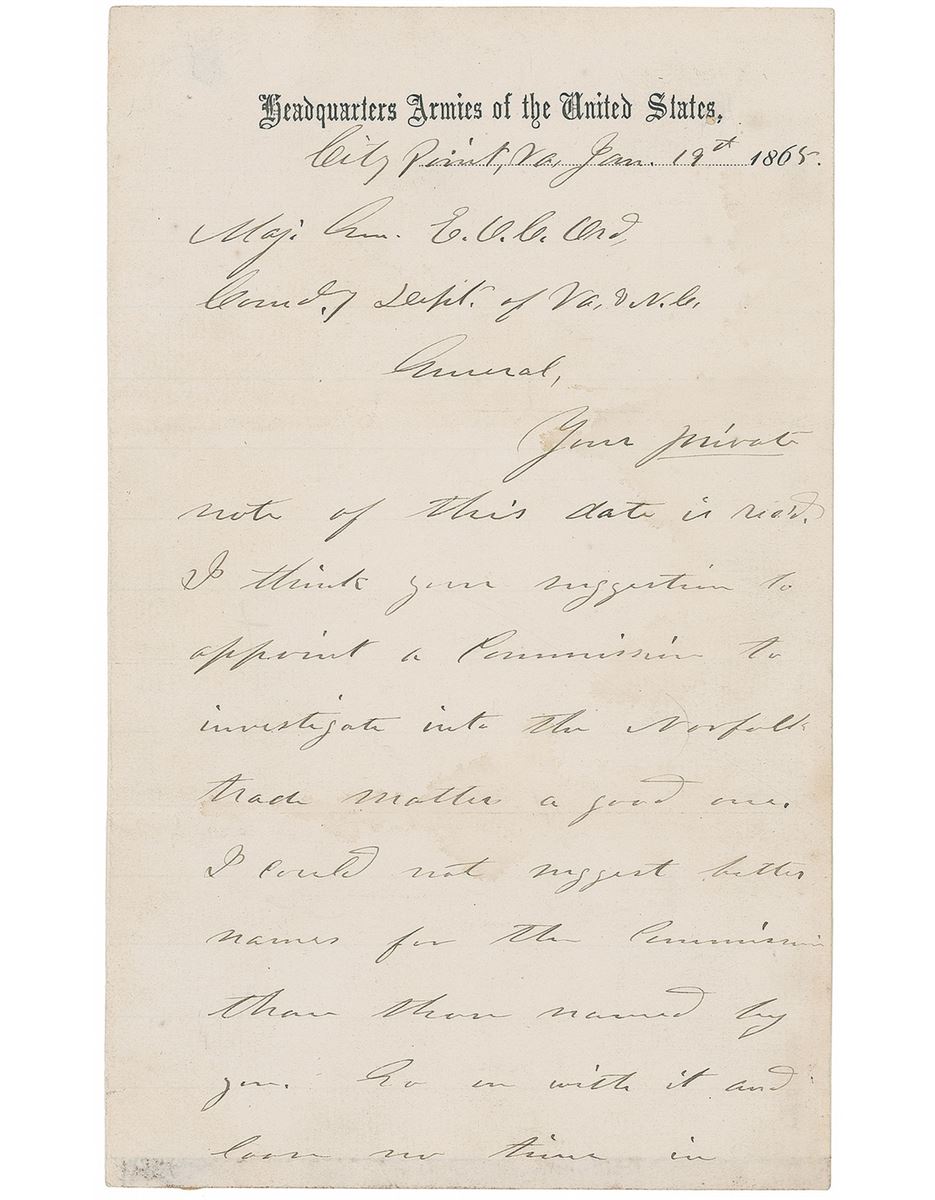 Headquarters Armies of the United States,
City Point, Va, Jan. 19th 1865.
Maj. Gen. E. O. C. Ord,
Comd.g Dept. of Va, & N.C.
General,
Your private
note of this date is rec'd.
I think your suggestion to
appoint a Commission to
investigate into the Norfolk
trade matter a good one.
I could not suggest better
names for the Commission
than those named by
you. Go on with it and
loose no time in